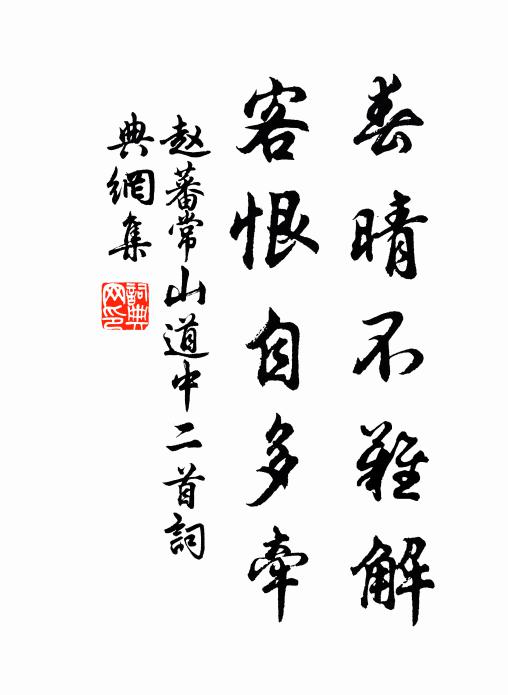 春晴不難解
客恨自多牽
赵蕃常山道中二首詞
典網集
詞典
网印